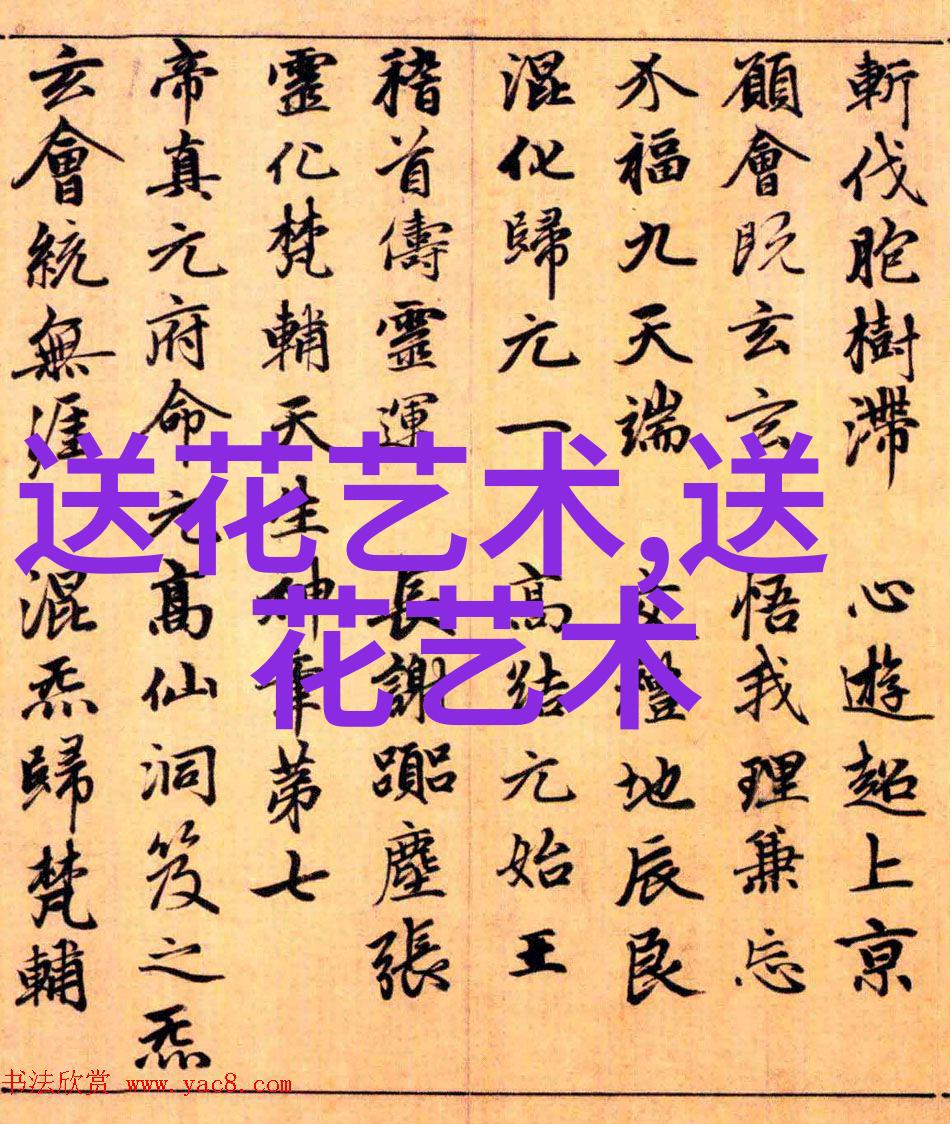 斬伐胞樹滯　心遊超上京
願會既玄玄　悟我理兼忘
福九天端　交　地辰良
混化歸元一　高結元始王
稽首儔靈運　長謝躡塵張
靈化梵輔天生神章第七
帝真元府命元高仙洞笈之炁
玄會統無涯混炁歸梵輔
送花艺术,送
花艺术
书法欣赏 www.yac8.com